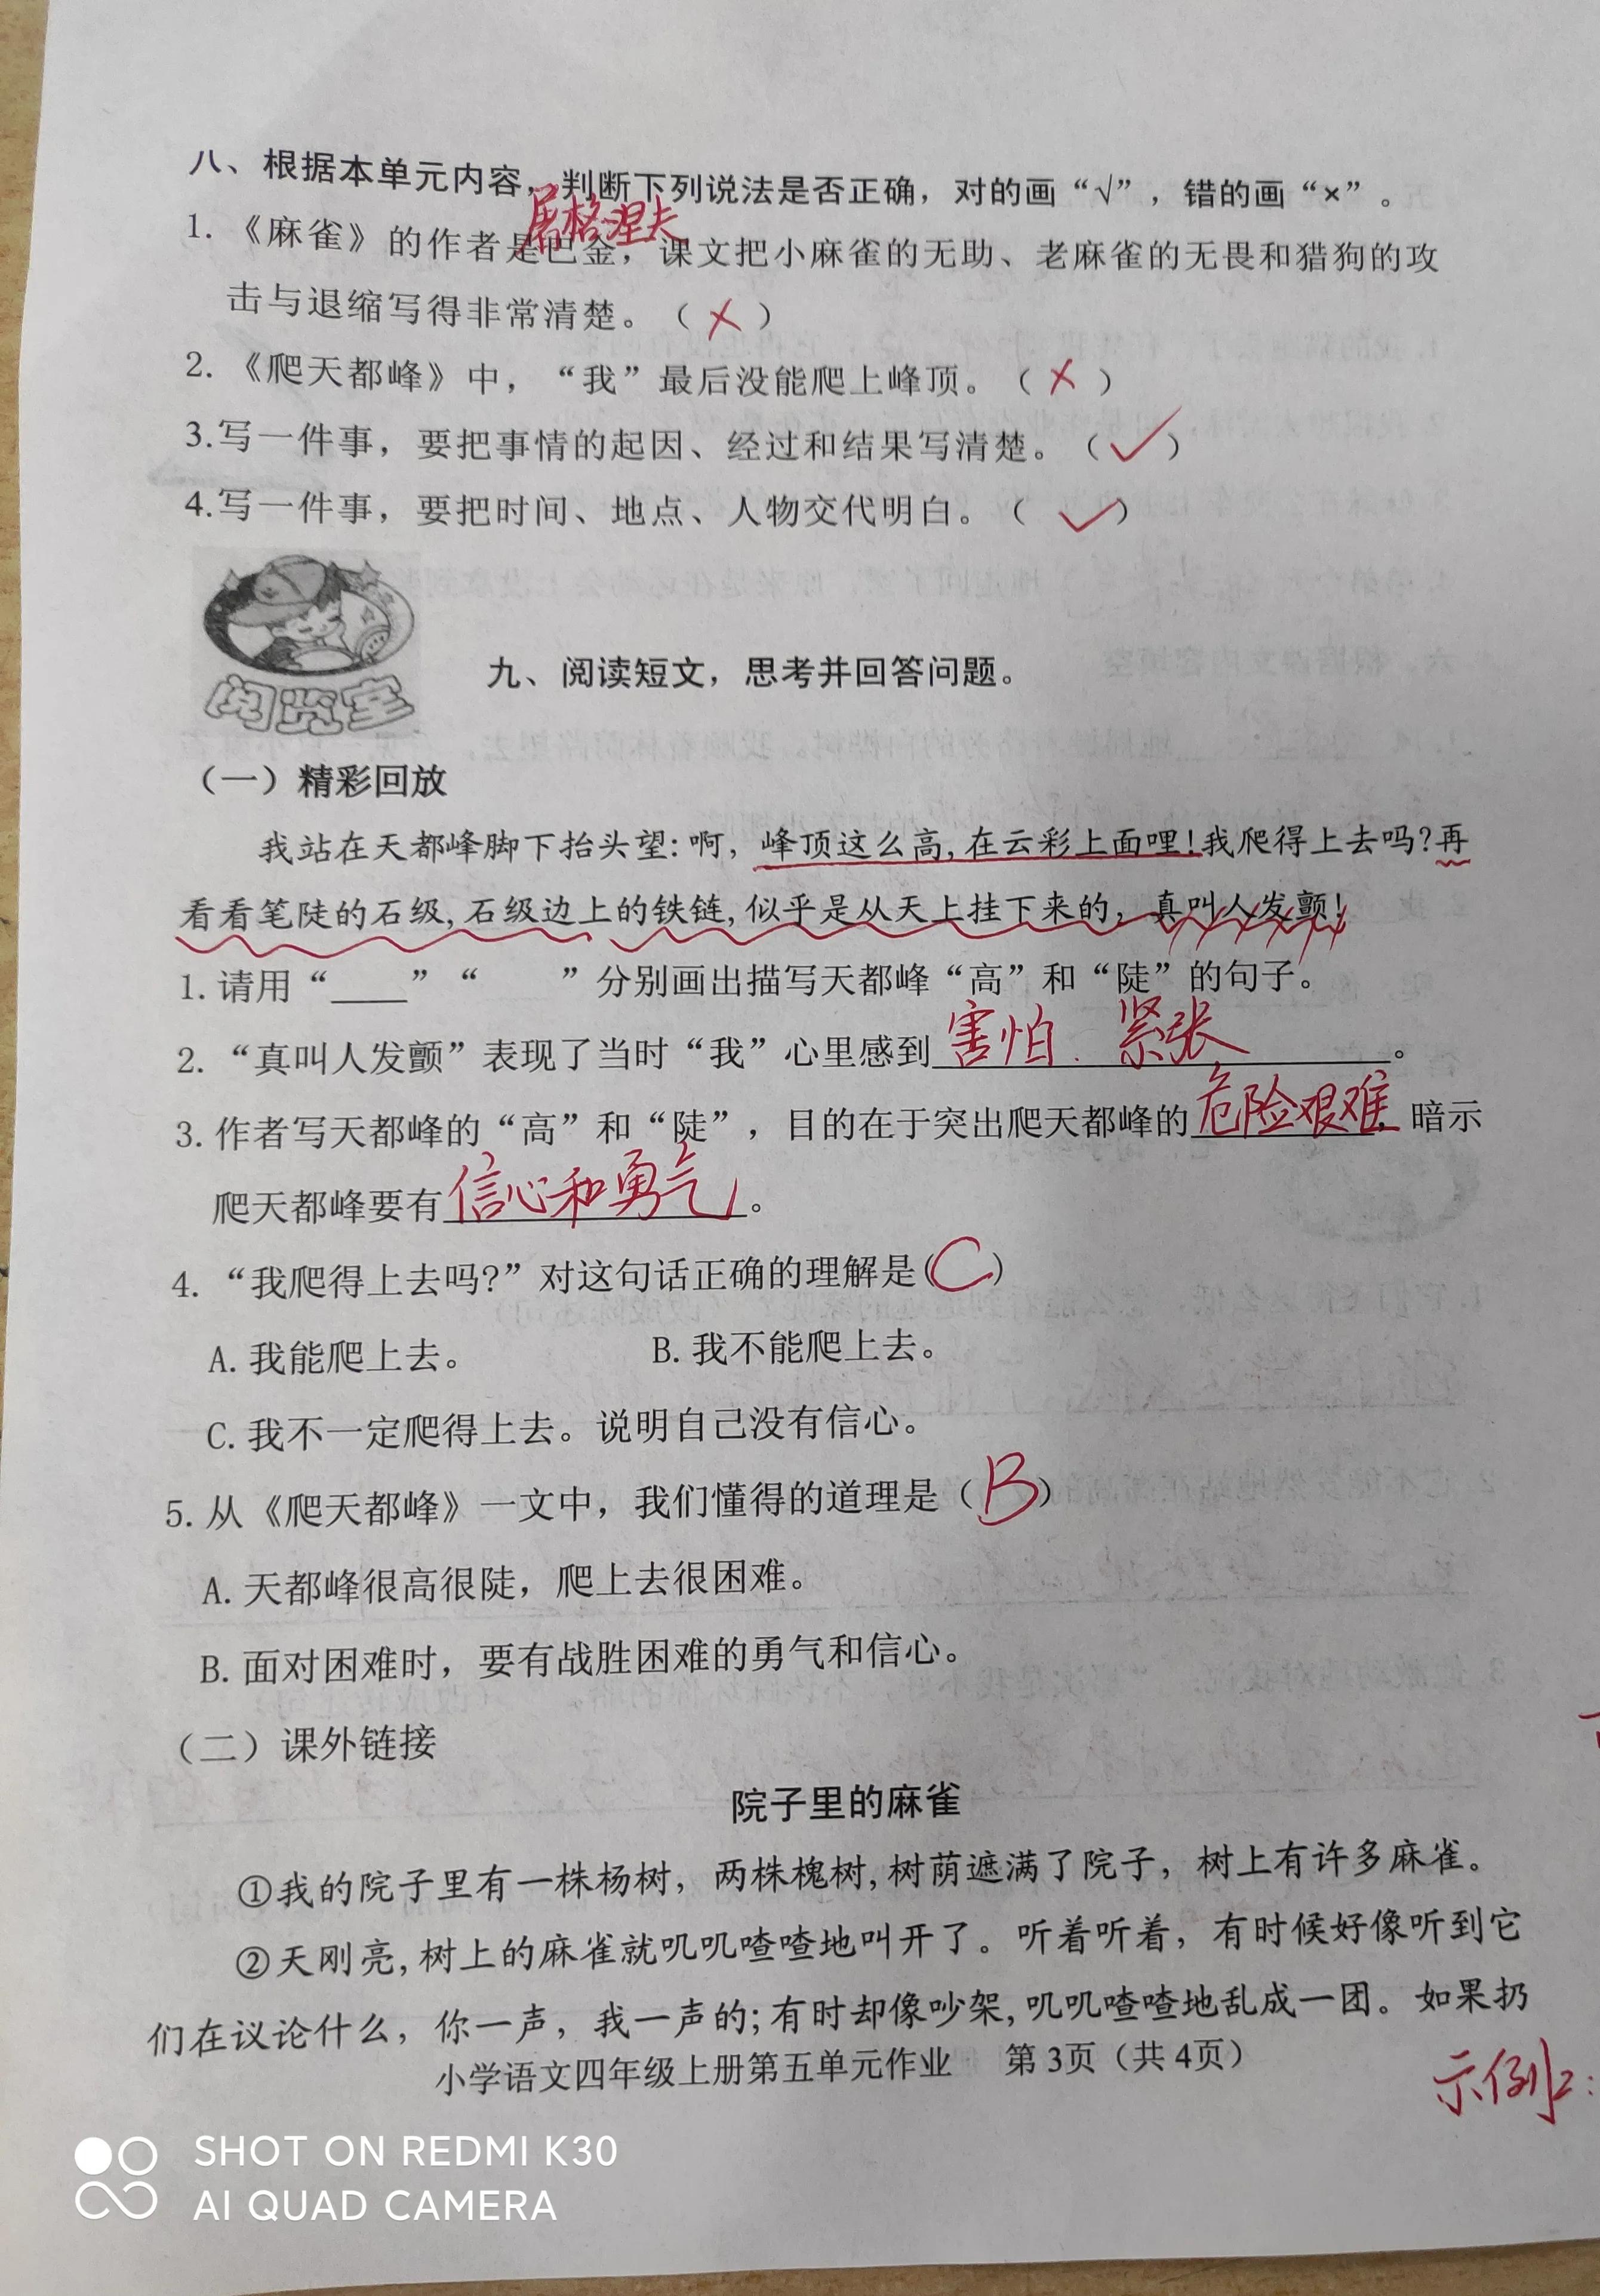 八、根据本单元内容，判断下列说法是否正确，对的画“√”，错的画“×”。
屠格涅夫
1.《麻雀》的作者是巴金，课文把小麻雀的无助、老麻雀的无畏和猎狗的攻
击与退缩写得非常清楚。（×）
2.《爬天都峰》中，“我”最后没能爬上峰顶。（×）
3.写一件事，要把事情的起因、经过和结果写清楚。（✓）
4.写一件事，要把时间、地点、人物交代明白。（✓）
阅览室
九、阅读短文，思考并回答问题。
（一）精彩回放
我站在天都峰脚下抬头望：啊，峰顶这么高，在云彩上面哩！我爬得上去吗？再
看看笔陡的石级，石级边上的铁链，似乎是从天上挂下来的，真叫人发颤！
1.请用“____”“　　”分别画出描写天都峰“高”和“陡”的句子。
2.“真叫人发颤”表现了当时“我”心里感到害怕、紧张。
3.作者写天都峰的“高”和“陡”，目的在于突出爬天都峰的危险艰难，暗示
爬天都峰要有信心和勇气。
4.“我爬得上去吗?”对这句话正确的理解是(C)
A.我能爬上去。 B.我不能爬上去。
C.我不一定爬得上去。说明自己没有信心。
5.从《爬天都峰》一文中，我们懂得的道理是（B）
A.天都峰很高很陡，爬上去很困难。
B.面对困难时，要有战胜困难的勇气和信心。
（二）课外链接
院子里的麻雀
①我的院子里有一株杨树，两株槐树，树荫遮满了院子，树上有许多麻雀。
②天刚亮，树上的麻雀就叽叽喳喳地叫开了。听着听着，有时候好像听到它
们在议论什么，你一声，我一声的；有时却像吵架，叽叽喳喳地乱成一团。如果扔
小学语文四年级上册第五单元作业 第3页（共4页）
示例2：
SHOT ON REDMI K30
AI QUAD CAMERA